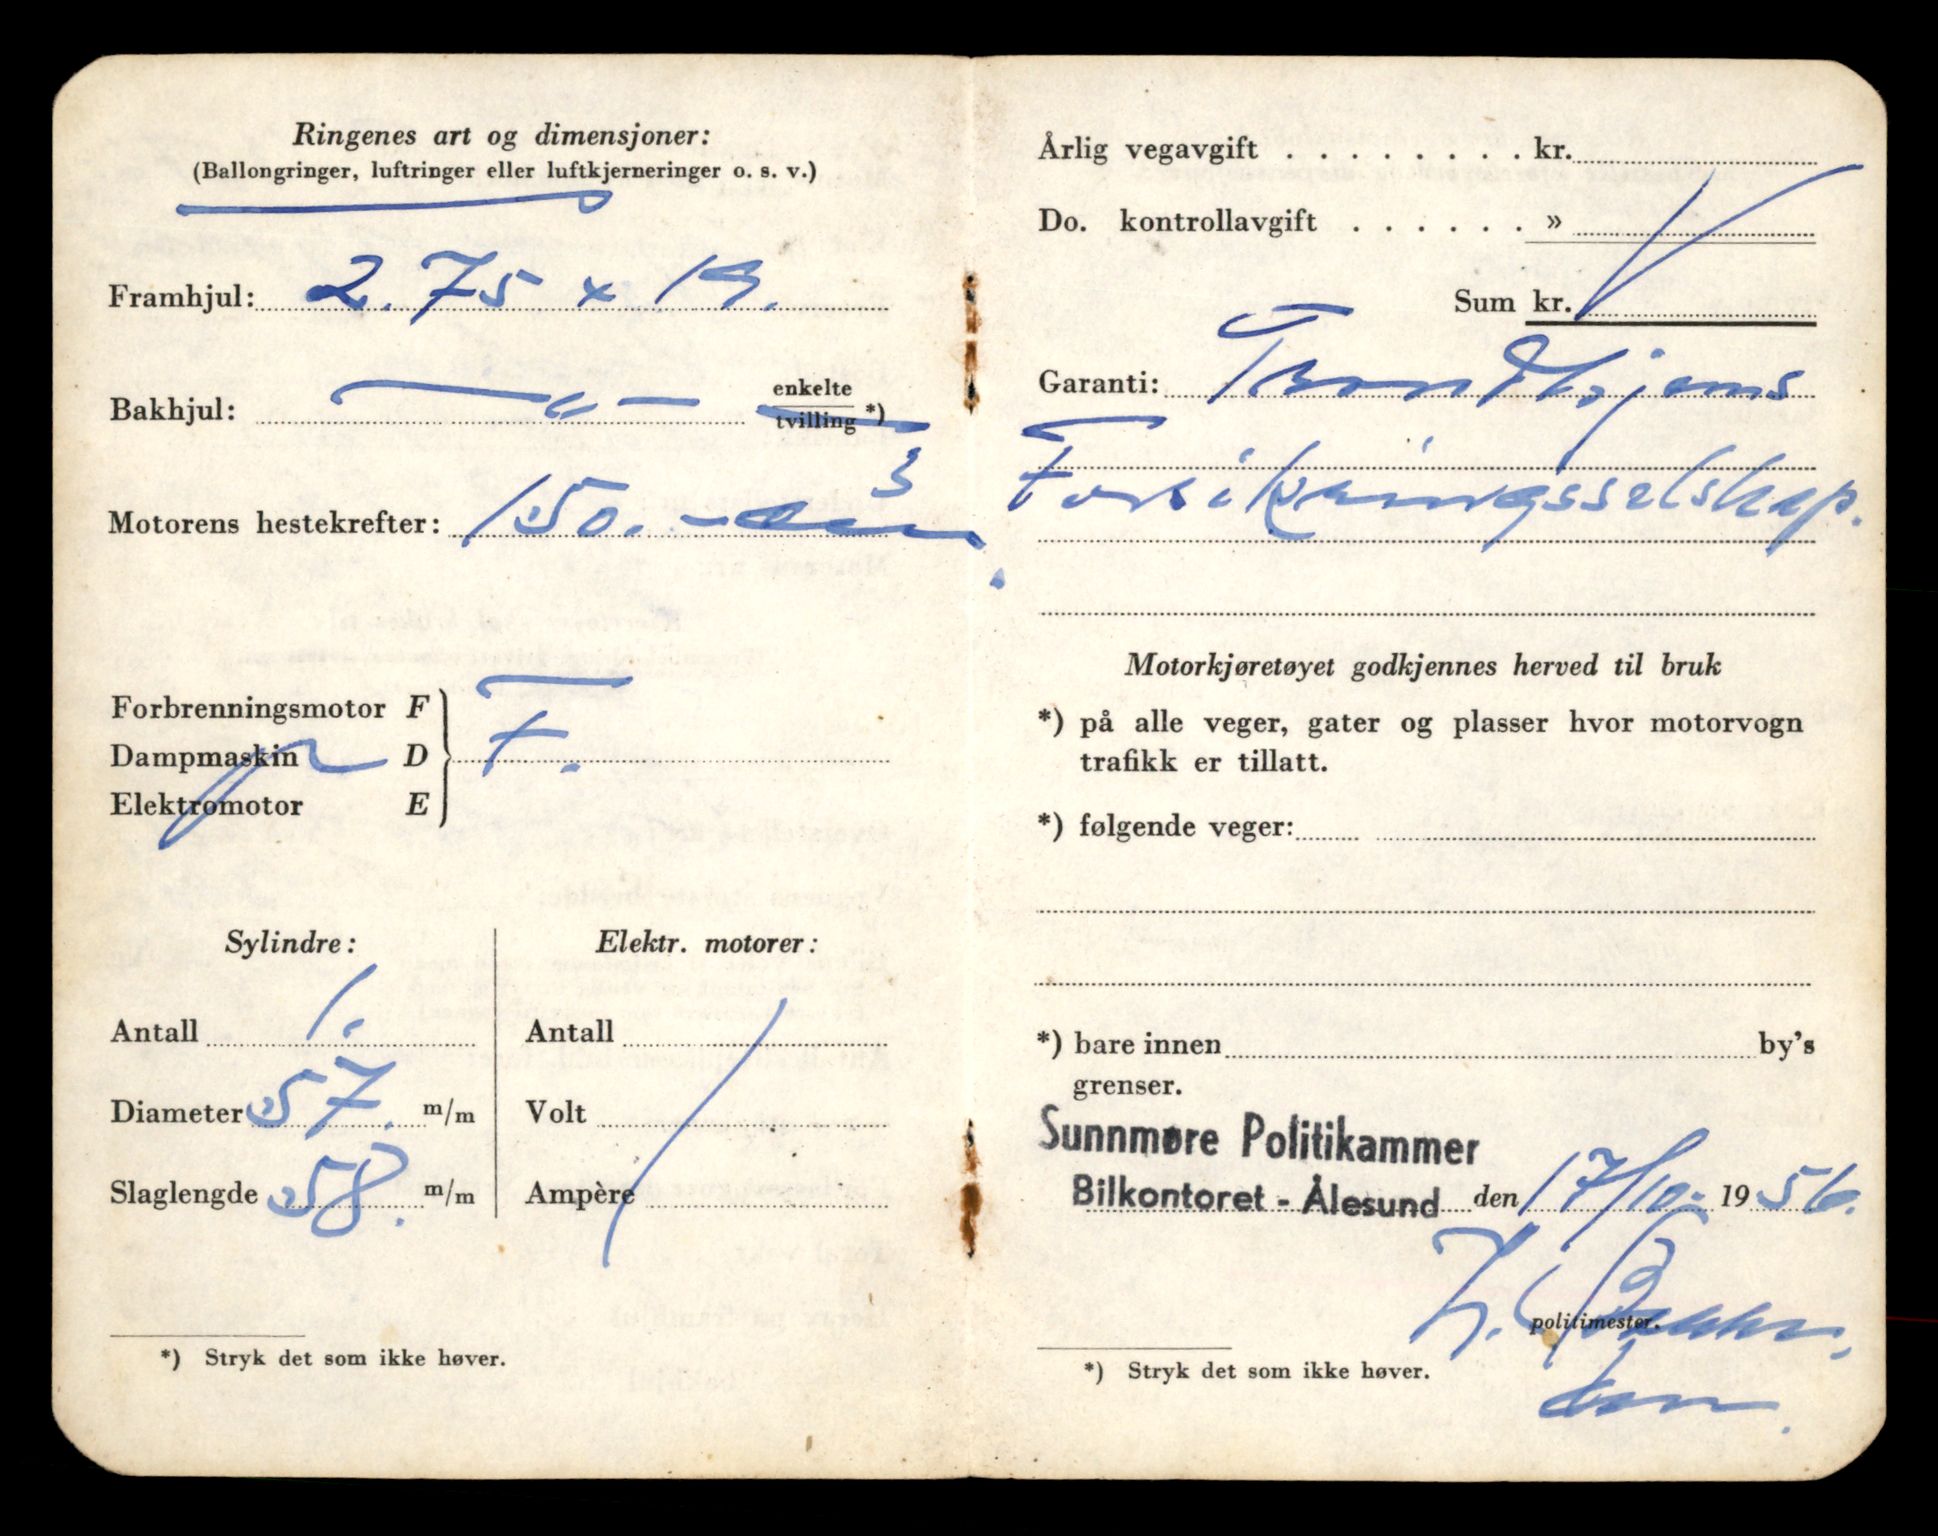 Ringenes art og dimensjoner:
(Ballongringer, luftringer eller luftkjerneringer o. s. v.)
Framhjul: 2.75 x 19.
Bakhjul: — „ — enkelte
tvilling *)
Motorens hestekrefter: 150.- cm3
Forbrenningsmotor F
Dampmaskin D
Elektromotor E
F.
Sylindre:
Antall 1.
Diameter 57. m/m
Slaglengde 58. m/m
Elektr. motorer:
Antall
Volt
Ampère
*) Stryk det som ikke høver.
Årlig vegavgift . . . . . . . . kr.
Do. kontrollavgift . . . . . . »
Sum kr.
Garanti: Trondhjems
Forsikringsselskap.
Motorkjøretøyet godkjennes herved til bruk
*) på alle veger, gater og plasser hvor motorvogn
trafikk er tillatt.
*) følgende veger:
*) bare innen by's
grenser.
Sunnmøre Politikammer
Bilkontoret - Ålesund den 17/10- 1956.
politimester.
*) Stryk det som ikke høver.